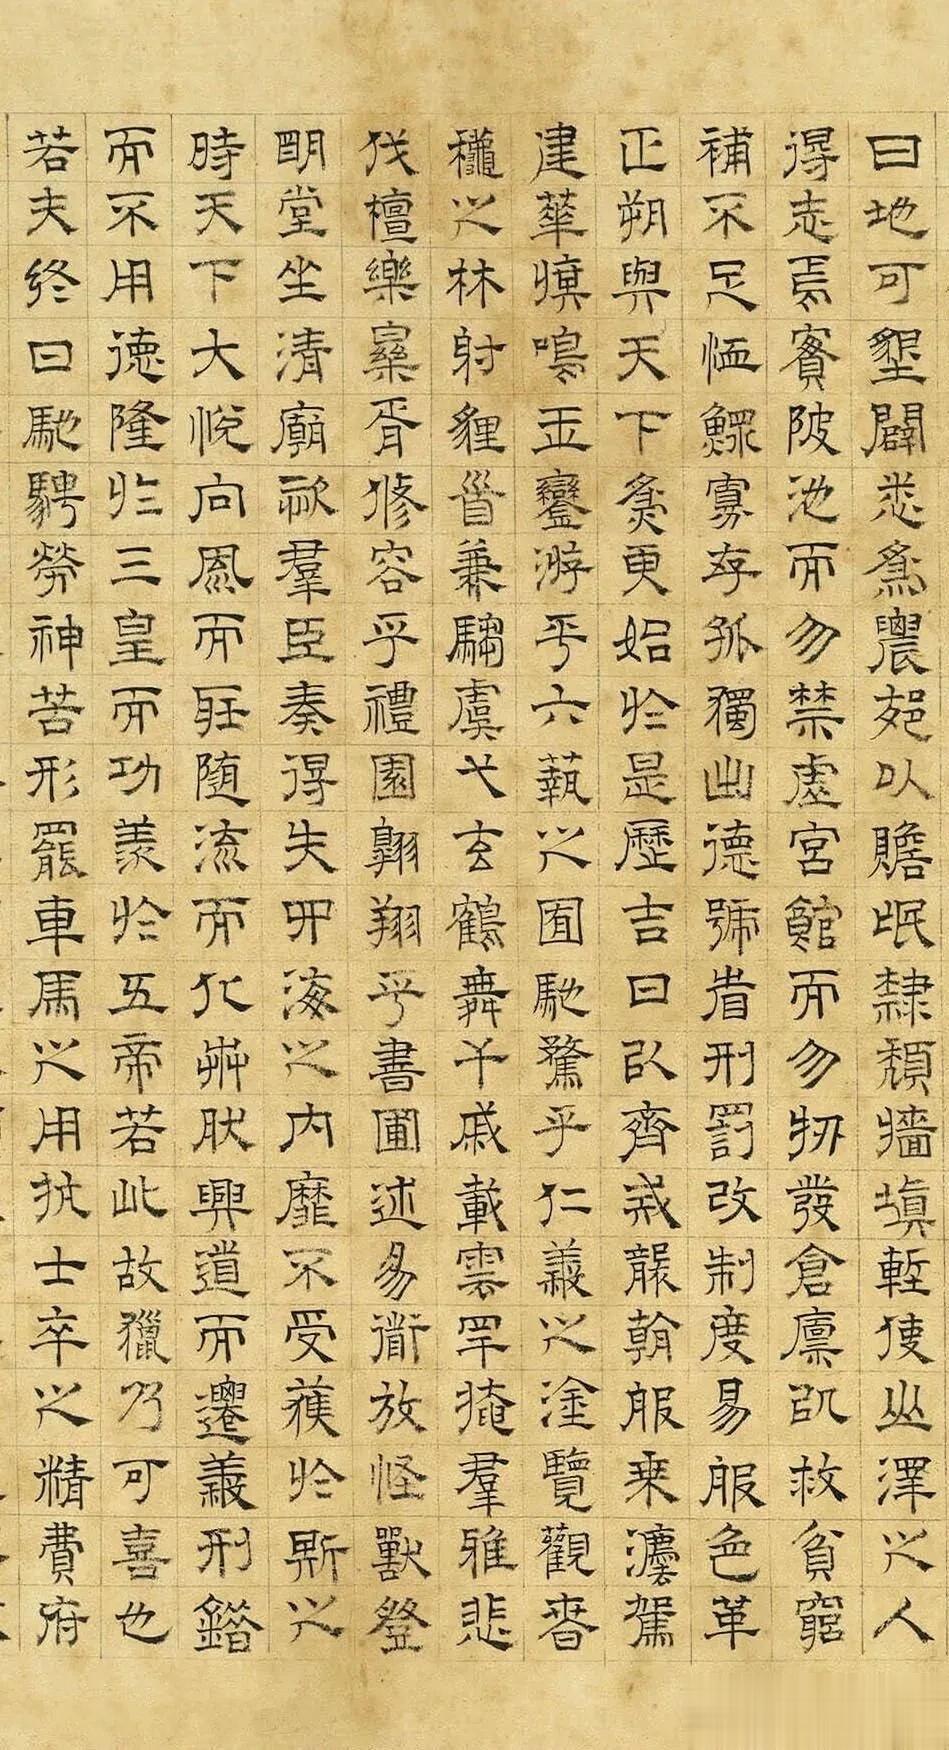 曰地可墾闢悉為農郊以贍氓隸頹牆填塹使山澤之人
得志焉賓陂池而勿禁虛宮館而勿牣發倉廩以救貧窮
補不足恤鰥寡存孤獨出德號省刑罰改制度易服色革
正朔與天下為更始於是歷吉日以齊戒襲朝服乘灋駕
建華旗鳴玉鸞游乎六藝之囿馳騖乎仁義之塗覽觀春
龝之林射貍首兼騶虞弋玄鶴舞干戚載雲罕掩羣雅悲
伐檀樂樂胥修容乎禮園翱翔乎書圃述易道放怪獸登
明堂坐清廟恣羣臣奏得失四海之內靡不受獲於斯之
時天下大悅向風而聽随流而化芔然興道而遷義刑錯
而不用德隆於三皇而功羨於五帝若此故獵乃可喜也
若夫終日馳騁勞神苦形罷車馬之用抏士卒之精費府